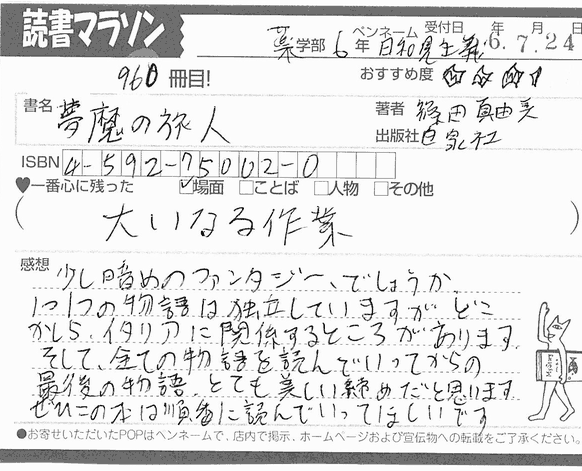 読書マラソン
薬学部 6年 ペンネーム 日和見主義 受付日 年 月 日
6.7.24
960 冊目! おすすめ度 ☆☆☆
書名 夢魔の旅人
著者 篠田真由美
出版社 白泉社
ISBN 4-592-75002-0
♥一番心に残った ☑場面 □ことば □人物 □その他
(大いなる作業)
感想 少し暗めのファンタジー、でしょうか。
1つ1つの物語は独立していますが どこ
かしら、イタリアに関係するところがあります。
そして、全ての物語を読んでいってからの
最後の物語、とても美しい締めだと思います
ぜひこの本は順番に読んでいってほしいです
●お寄せいただいたPOPはペンネームで、店内で掲示、ホームページおよび宣伝物への転載をご了承ください。